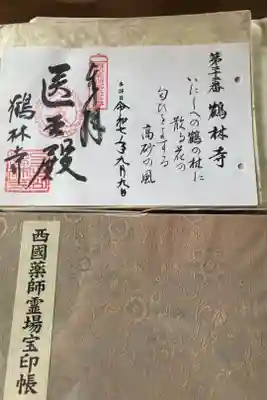 第廿二番　鶴林寺
いにしへの鶴の林に
散る花の
匂ひをよする
高砂の風
令和七年九月九日
医王殿
鶴林寺
西國薬師霊場宝印帳